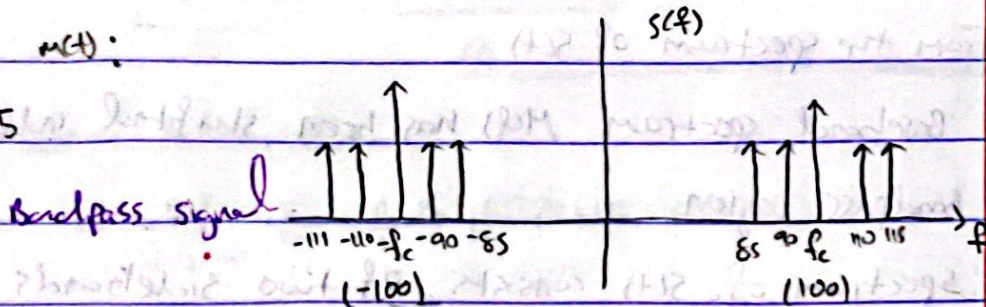 m(t) :
S(f)
5
Bandpass signal
-111 -110 -fc -90 -85
85 90 fc 110 115 f
(-100)
(100)